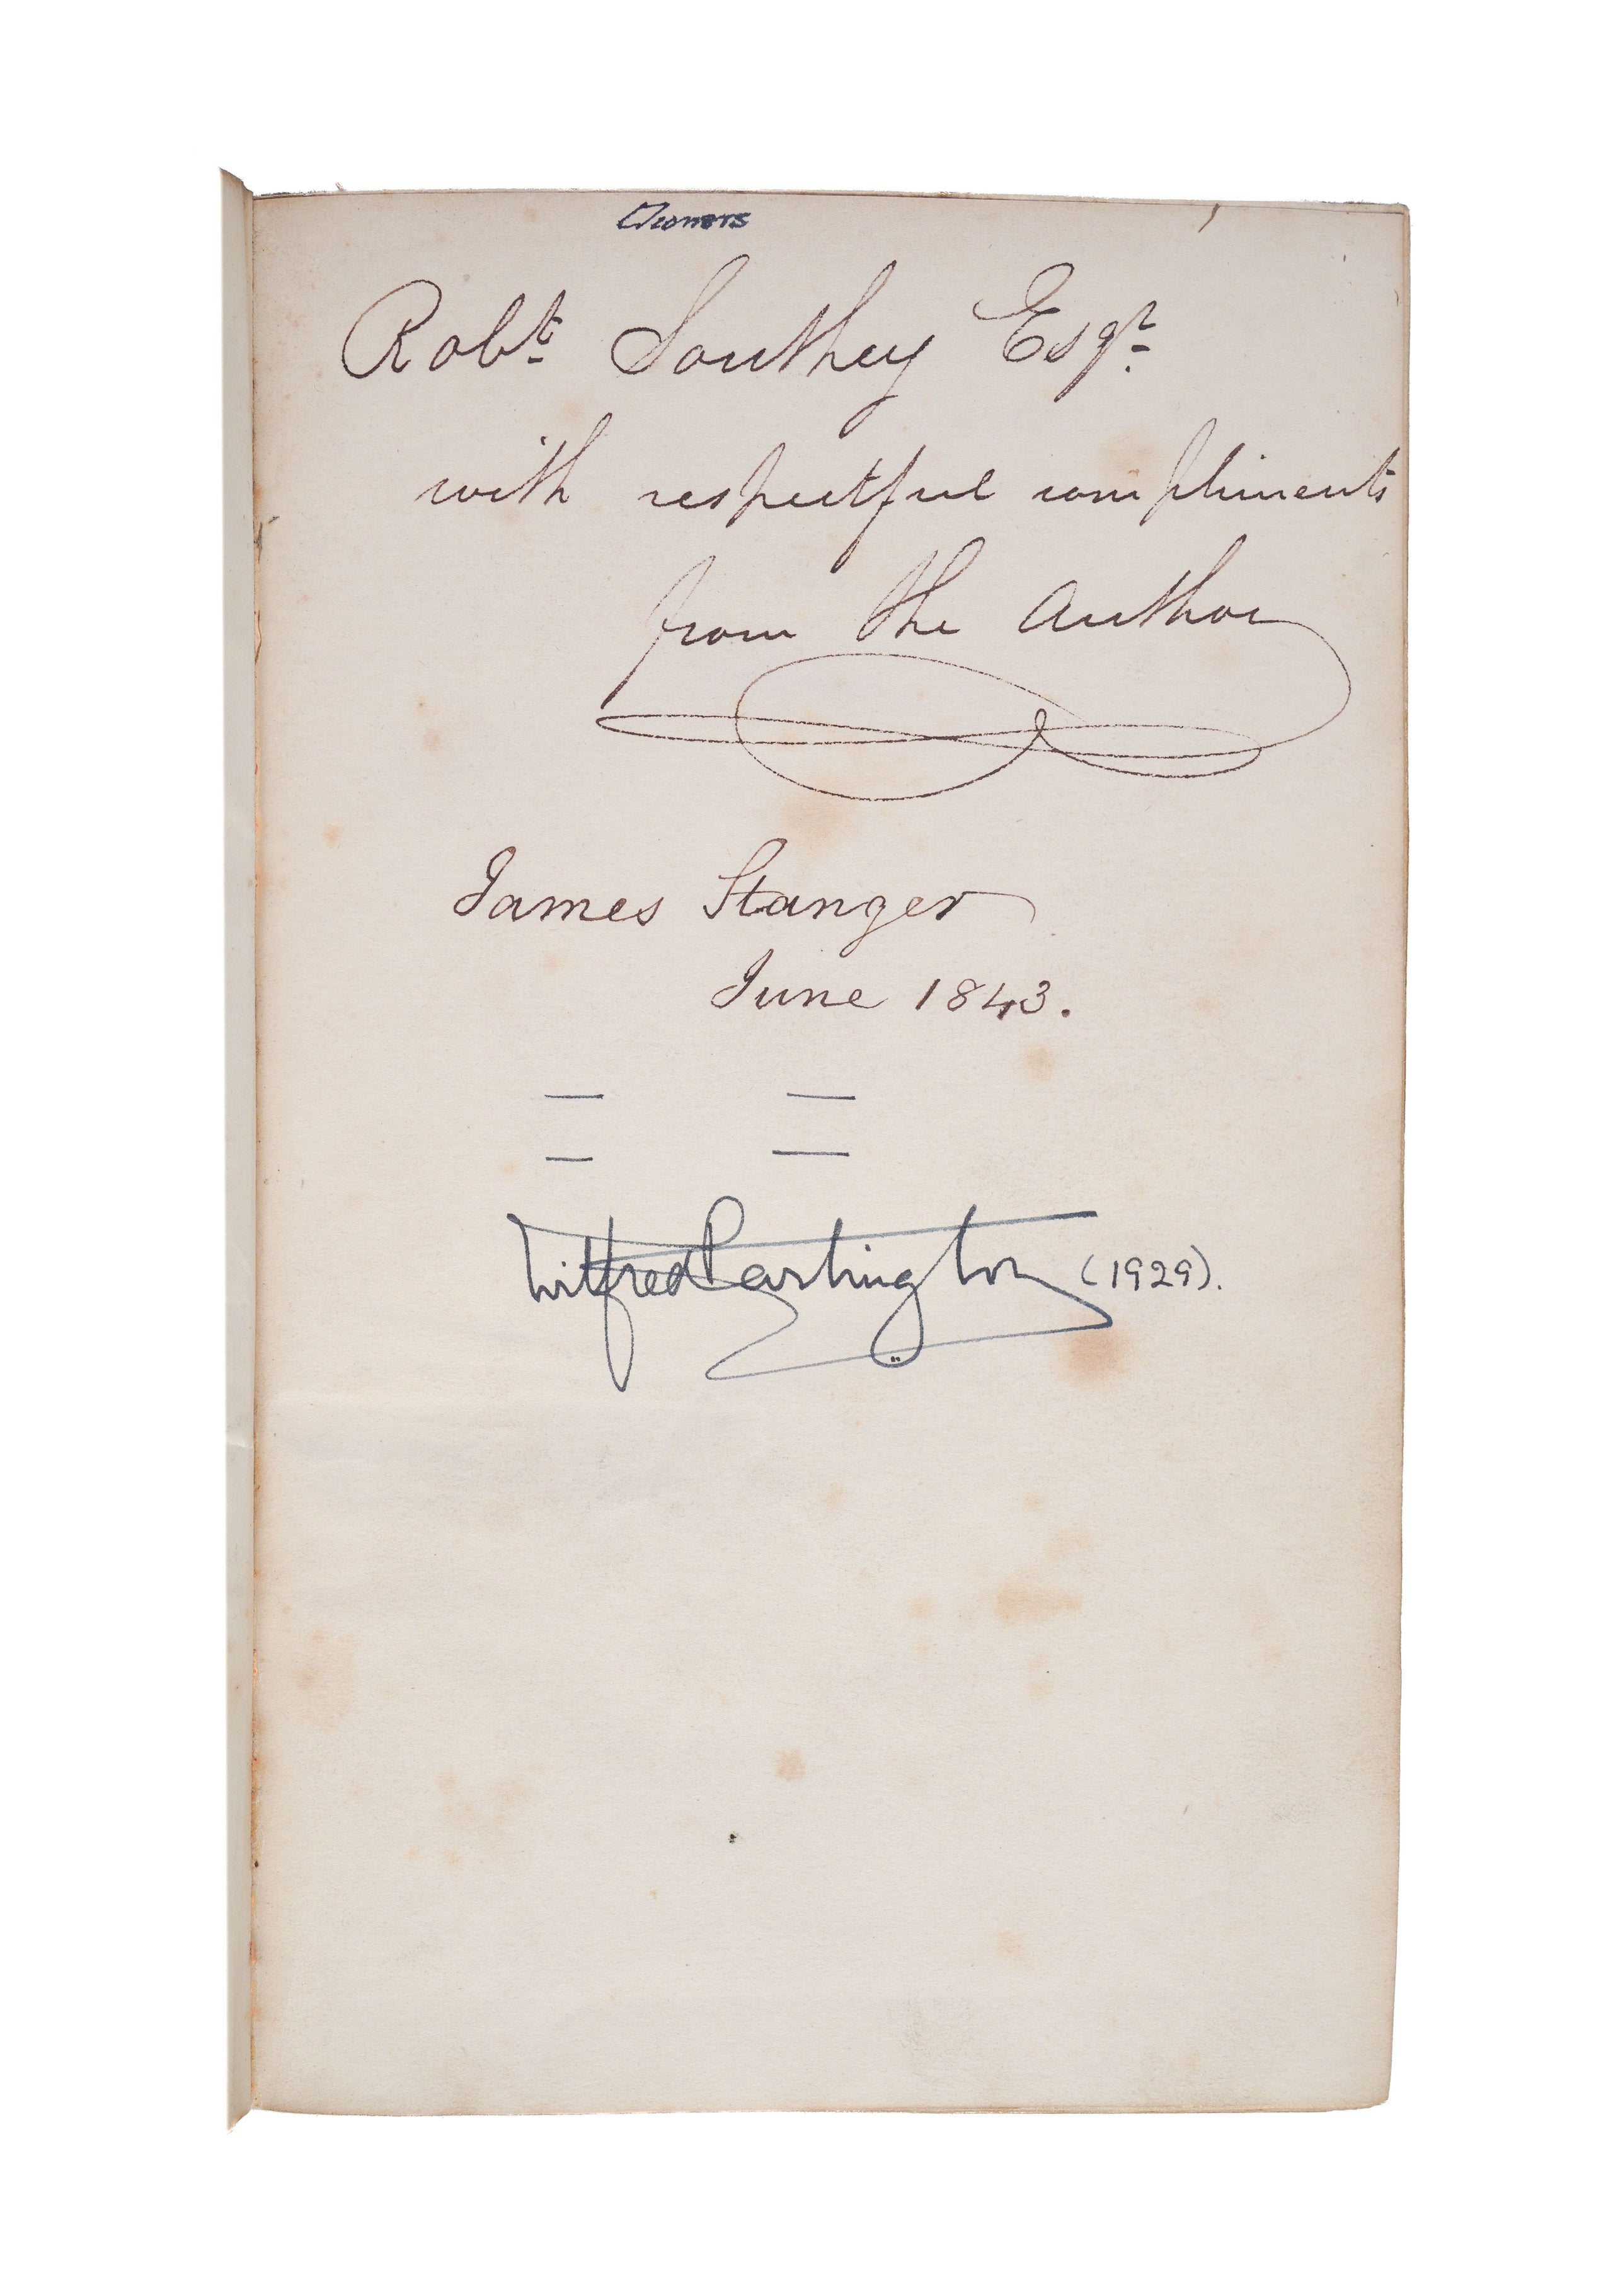 Owners
Robt Southey Esqr
with respectful compliments
from the Author
James Stanger
June 1843.
Wilfred Partington (1929).